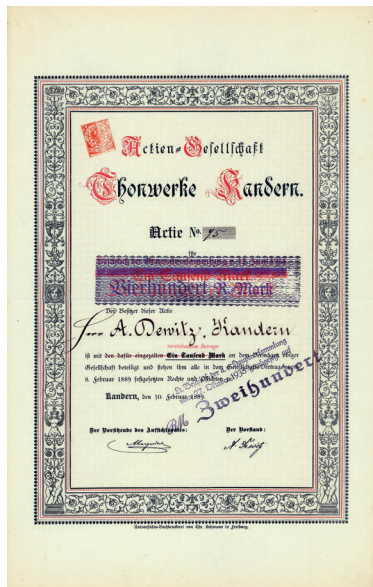 Actien-Gesellschaft
Thonwerke Kandern.
Actie No. 95
für
Ein Tausend Mark
Vierhundert R. Mark
Der Besitzer dieser Actie
Herr A. Dewitz, Kandern
vorstehendem Betrage
ist mit den dafür eingezahlten Ein Tausend Mark an dem Vermögen obiger
Gesellschaft beteiligt und stehen ihm alle in dem Gesellschafts-Vertrage vom
8. Februar 1889 festgesetzten Rechte und Pflichten zu.
Kandern, den 10. Februar 1889.
RM Zweihundert
Der Vorsitzende des Aufsichtsrats:
Der Vorstand:
Universitäts-Buchdruckerei von Chr. Lehmann in Freiburg.